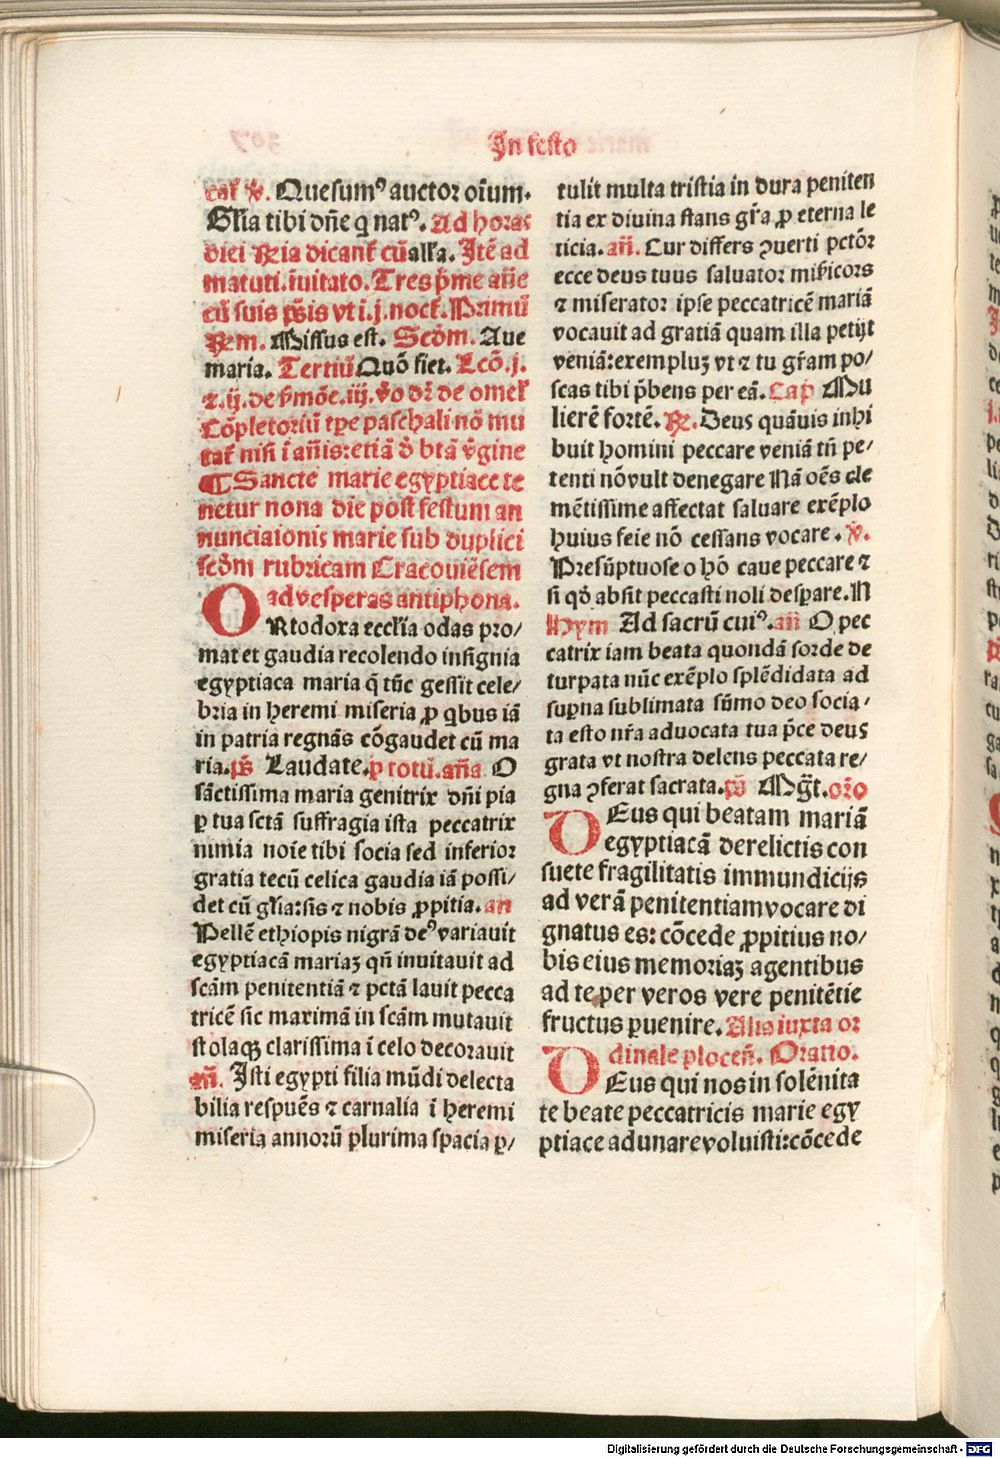 In festo
cat̃ v̾. Quesumꝰ auctor oĩum.
Gl̃ia tibi dñe q̃ natꝰ. Ad horas
diei R̃ia dicant̃ cũ all̃a. Itẽ ad
matuti. ĩuitato. Tres p̃me añe
cũ suis p̃sis vt i. j. noct̃. Primũ
R̃m. Missus est. Scðm. Aue
maria. Tertiũ Quõ fiet. Lcõ. j.
⁊. ij. de ẜmõe. iij. ṽo dr̃ de omel̃
Cõpletoriũ tp̃e paschali nõ mu
tat̃ nisi ĩ añis: etiã ð btã ṽgine
¶ Sancte marie egyptiace te
netur nona die post festum an
nunciationis marie sub duplici
scðm rubricam Cracouiẽsem
O ad vesperas antiphona.
Rtodoxa eccl̃ia odas pro/
mat et gaudia recolendo insignia
egyptiaca maria q̃ tũc gessit cele/
bria in heremi miseria ꝓ qbus iã
in patria regnãs cõgaudet cũ ma
ria. pš Laudate. ꝑ totũ. aña O
sãctissima maria genitrix dñi pia
ꝑ tua sctã suffragia ista peccatrix
nimia noĩe tibi socia sed inferior
gratia tecũ celica gaudia iã possi/
det cũ gl̃ia: sis ⁊ nobis ꝓpitia. an
Pellẽ ethiopis nigrã deꝰ variauit
egyptiacã mariaꝫ qñ inuitauit ad
scãm penitentiã ⁊ pctã lauit pecca
tricẽ sic maximã in scãm mutauit
stolaqꝫ clarissima ĩ celo decorauit
añ. Isti egypti filia mũdi delecta
bilia respuẽs ⁊ carnalia ĩ heremi
miseria annorũ plurima spacia ꝑ/
tulit multa tristia in dura peniten
tia ex diuina stans gr̃a ꝓ eterna le
ticia. añ. Cur differs ꝯuerti pctõr
ecce deus tuus saluator mis̃icors
⁊ miserator ipse peccatricẽ mariã
vocauit ad gratiã quam illa petijt
veniã: exempluꝫ vt ⁊ tu gr̃am po/
scas tibi p̃bens per eã. Cap̃ Mu
lierẽ fortẽ. R̃. Deus quãuis inhi
buit homini peccare veniã tñ pe/
tenti nõvult denegare Nã oẽs cle
mẽtissime affectat saluare exẽplo
huius feie nõ cessans vocare. v̾.
Presũptuose o hõ caue peccare ⁊
si qð absit peccasti noli desꝑare. N
Hym Ad sacrũ cuiꝰ. añ O pec
catrix iam beata quondã sorde de
turpata nũc exẽplo splẽdidata ad
suꝑna sublimata sũmo deo socia/
ta esto nr̃a aduocata tua p̃ce deus
grata vt nostra delens peccata re/
gna ꝯferat sacrata. pš Mg̃t. or̃o
DEus qui beatam mariã
egyptiacã derelictis con
suete fragilitatis immundicijs
ad verã penitentiam vocare di
gnatus es: cõcede ꝓpitius no/
bis eius memoriaꝫ agentibus
ad te per veros vere penitẽtie
fructus ꝑuenire. Alia iuxta or
dinale plocen̄. Oratio.
DEus qui nos in solẽnita
te beate peccatricis marie egy
ptiace adunare voluisti: cõcede
Digitalisierung gefördert durch die Deutsche Forschungsgemeinschaft - DFG